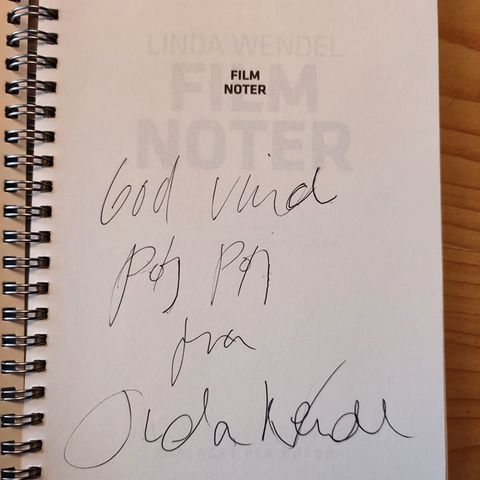 LINDA WENDEL
FILM
NOTER
FILM
NOTER
God vind
fra
Linda Wendel